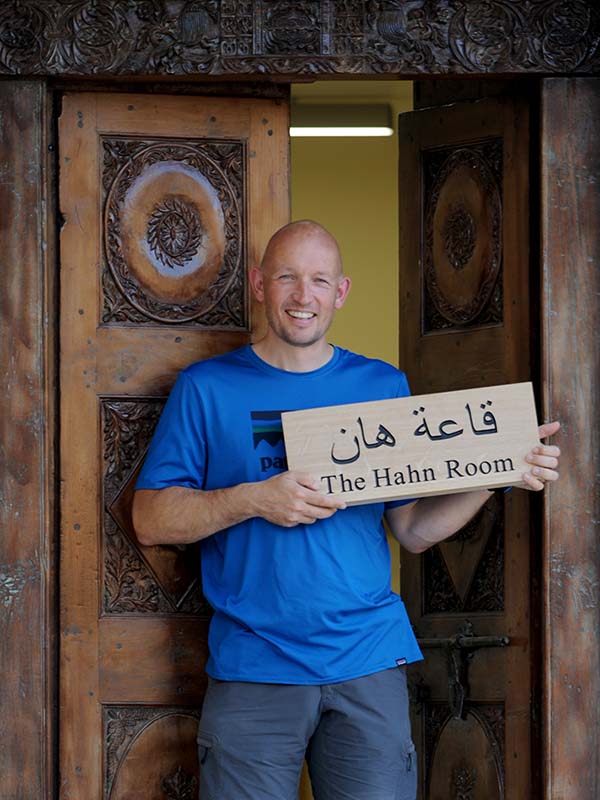 قاعة هان
The Hahn Room